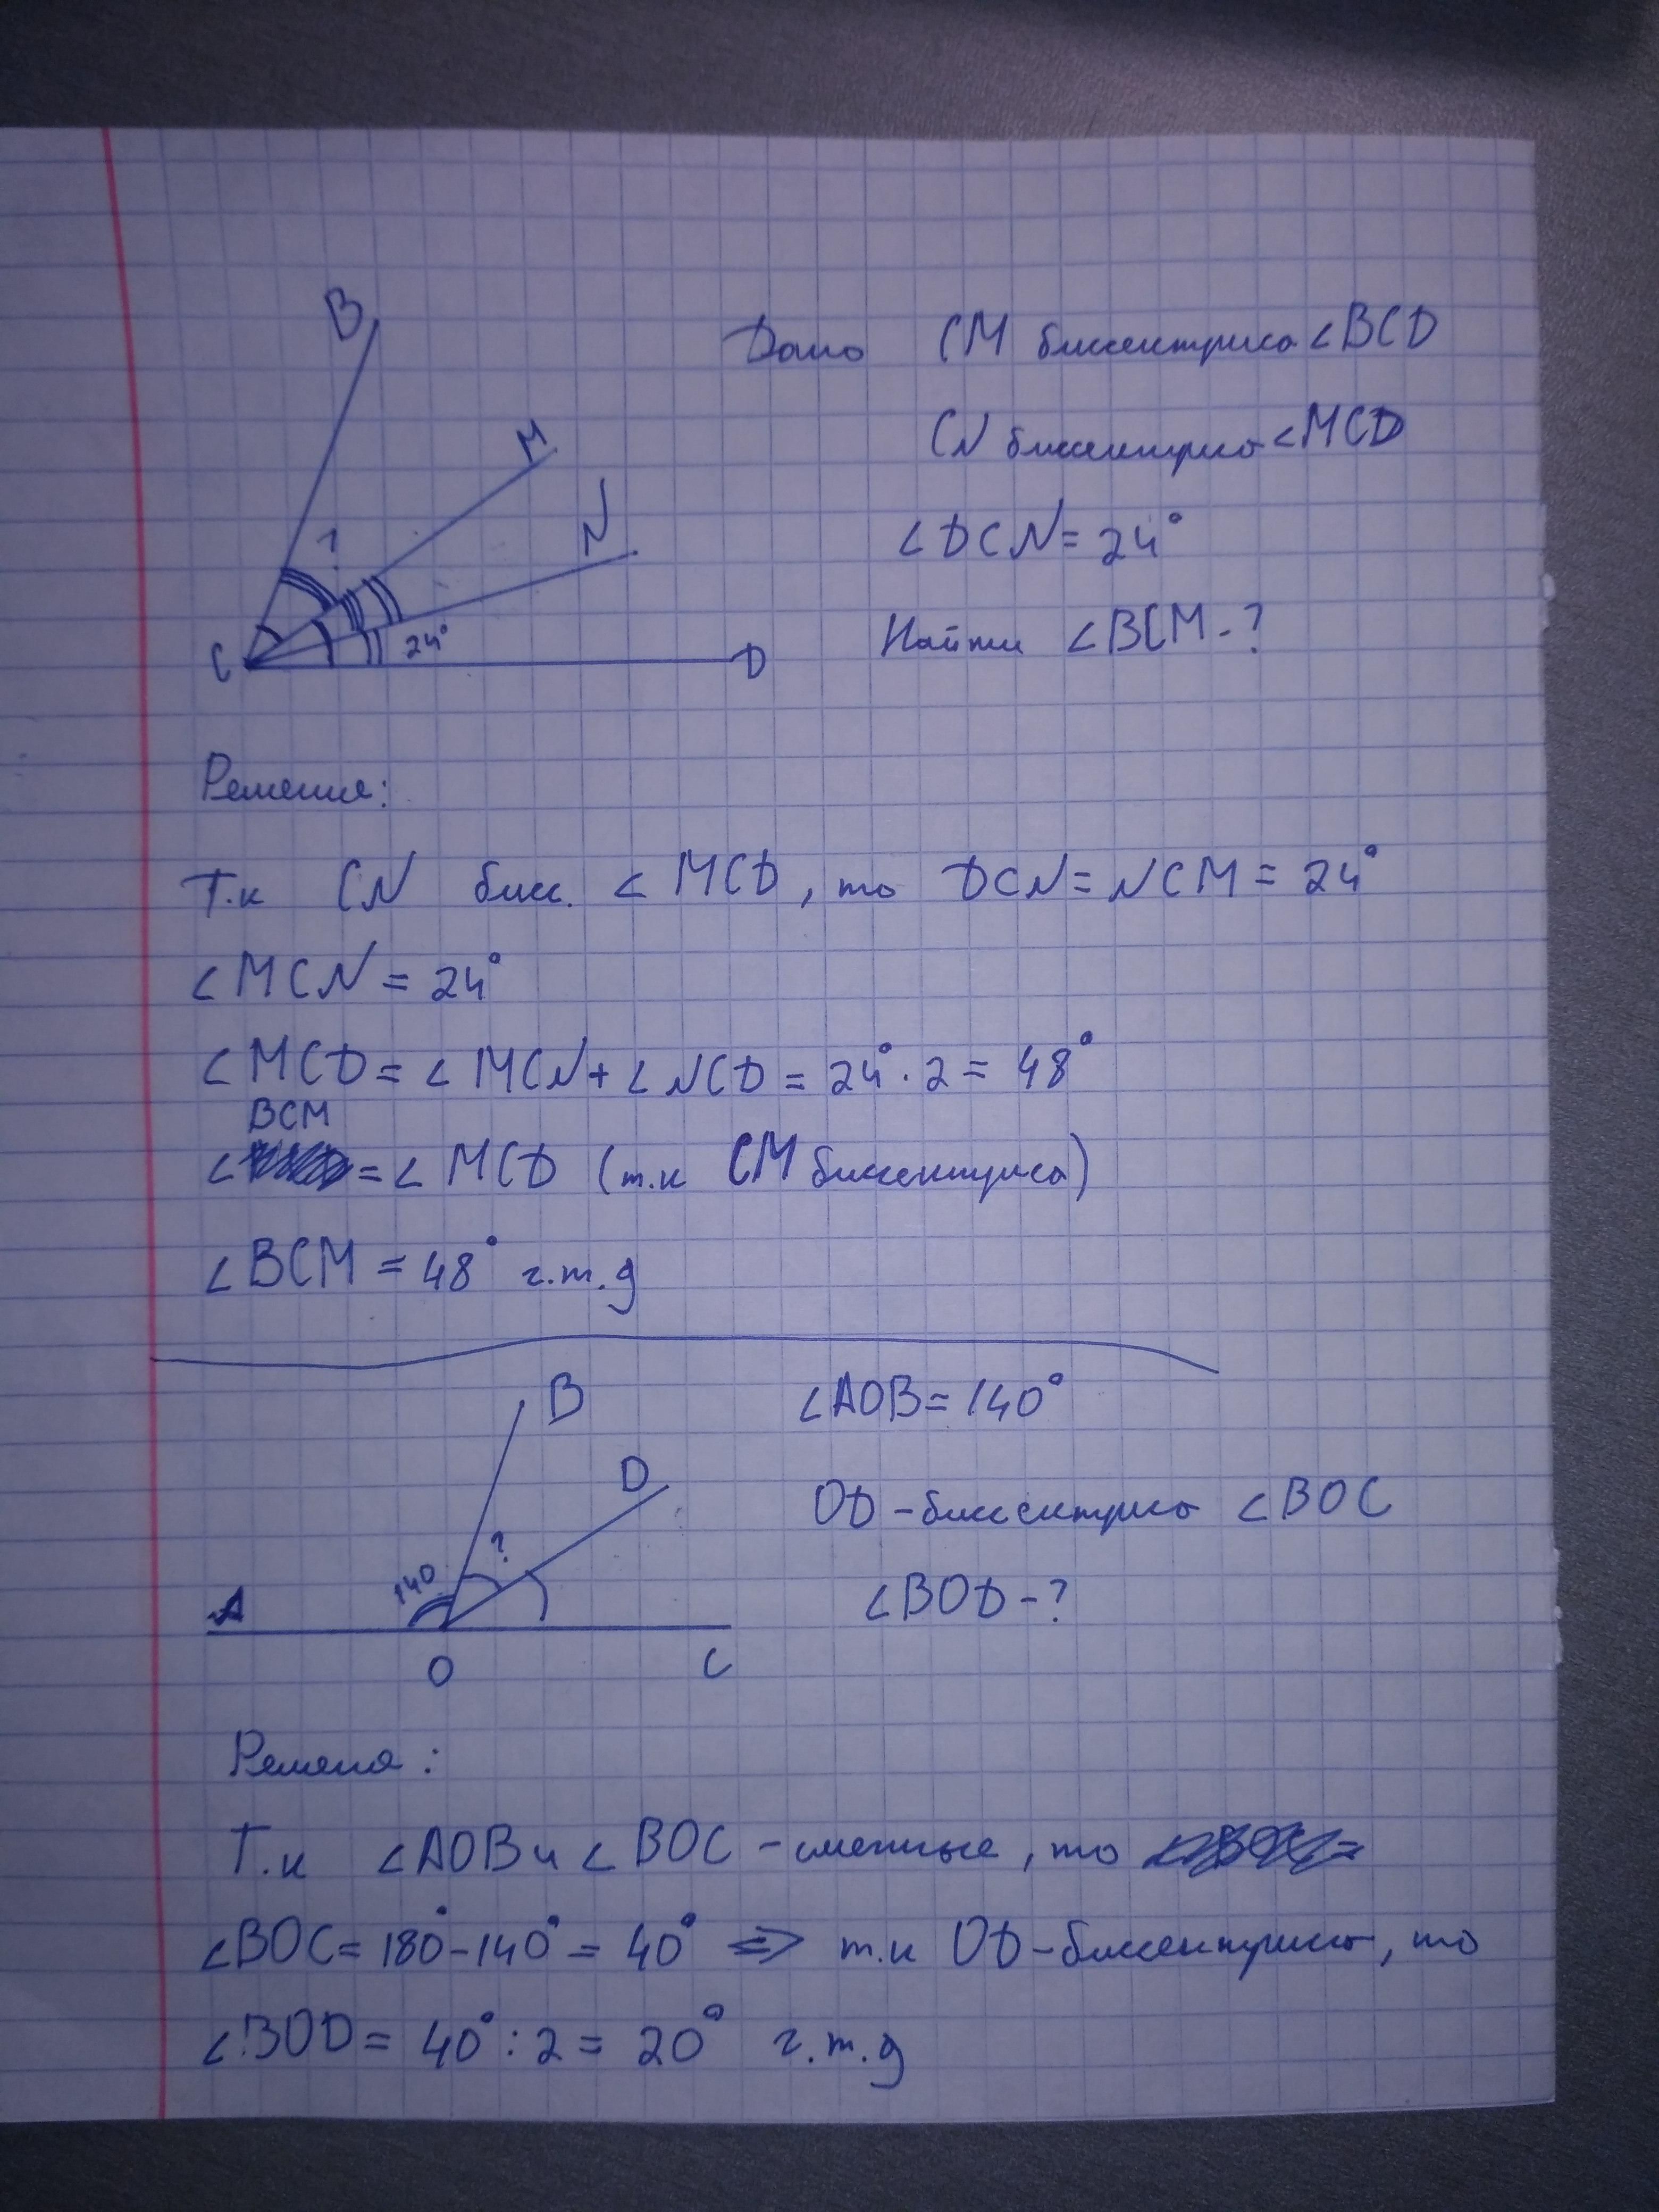 B
Дано CM биссектриса ∠BCD
M
CN биссектриса ∠MCD
N
∠DCN = 24°
?
24°
C
D
Найти ∠BCM - ?
Решение:
Т.к CN бисс. ∠MCD, то DCN = NCM = 24°
∠MCN = 24°
∠MCD = ∠MCN + ∠NCD = 24° · 2 = 48°
BCM
∠ = ∠MCD (т.к CM биссектриса)
∠BCM = 48° ч.т.д
B
∠AOB = 140°
D
OD - биссектриса ∠BOC
?
140
∠BOD - ?
A
O
C
Решена:
Т.к ∠AOB и ∠BOC - смежные, то
∠BOC = 180° - 140° = 40° => т.к OD - биссектриса, то
∠BOD = 40° : 2 = 20° ч.т.д